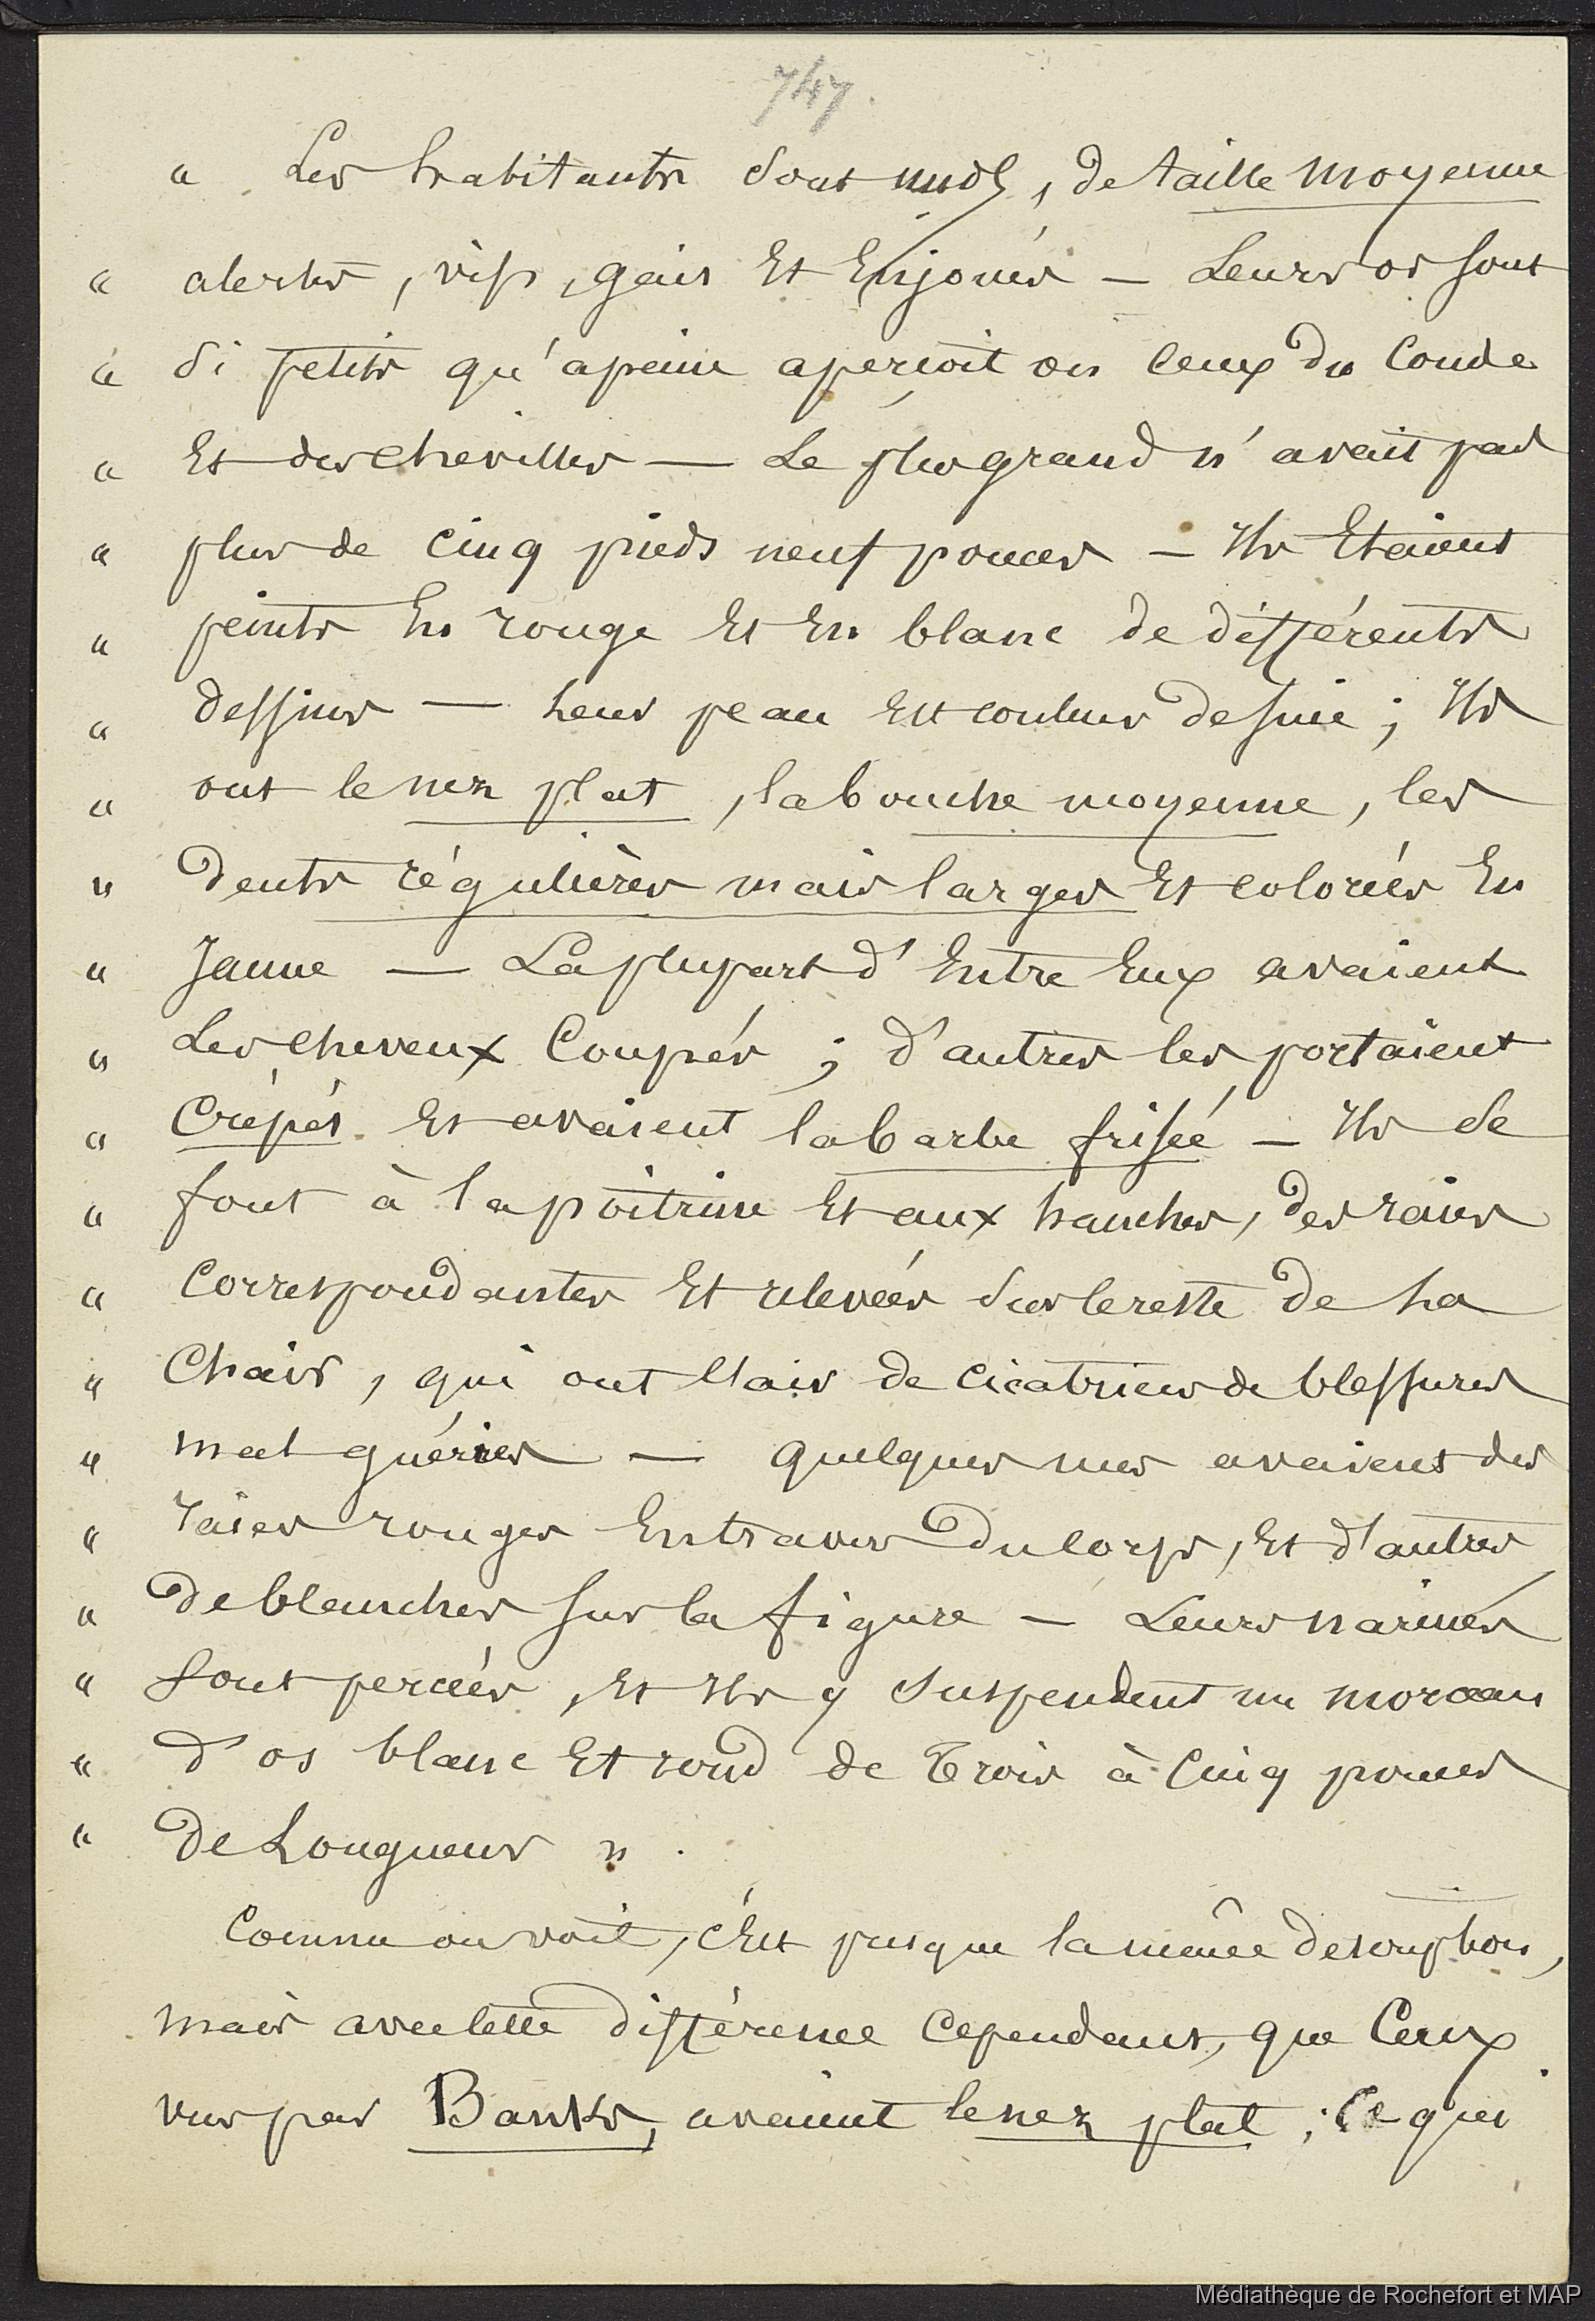 747.
" Les habitants sont nuds, de taille moyenne
" alertes, vifs, gais Et Enjoués — Leurs os sont
" si petits qu'apeine aperçoit on ceux du Coude
" Et des chevilles — Le plus grand n'avait pas
" plus de cinq pieds neuf pouces — Ils Etaient
" peints En rouge Et En blanc de différents
" dessins — Leur peau Est couleur de suie ; Ils
" ont le nez plat, la bouche moyenne, les
" dents régulières mais larges Et colorées En
" Jaune — La plupart d'Entre Eux avaient
" Les cheveux Coupés ; d'autres les portaient
" Crépés Et avaient la barbe frisée — Ils se
" font à la poitrine Et aux hanches, des raies
" Correspondantes Et relevées sur le reste de la
" Chair, qui ont l'air de cicatrices de blessures
" mal guéries — quelques unes avaient des
" raies rouges En travers du corps, Et d'autres
" de blanches sur la figure — Leurs narines
" sont percées, Et Ils y suspendent un morceau
" d'os blanc Et rond de Trois à Cinq pouces
" de Longueur ".
Comme on voit, c'Est presque la même description,
mais avec cette différence cependant, que Ceux
vus par Banks, avaient le nez plat ; Ce qui
Médiathèque de Rochefort et MAP